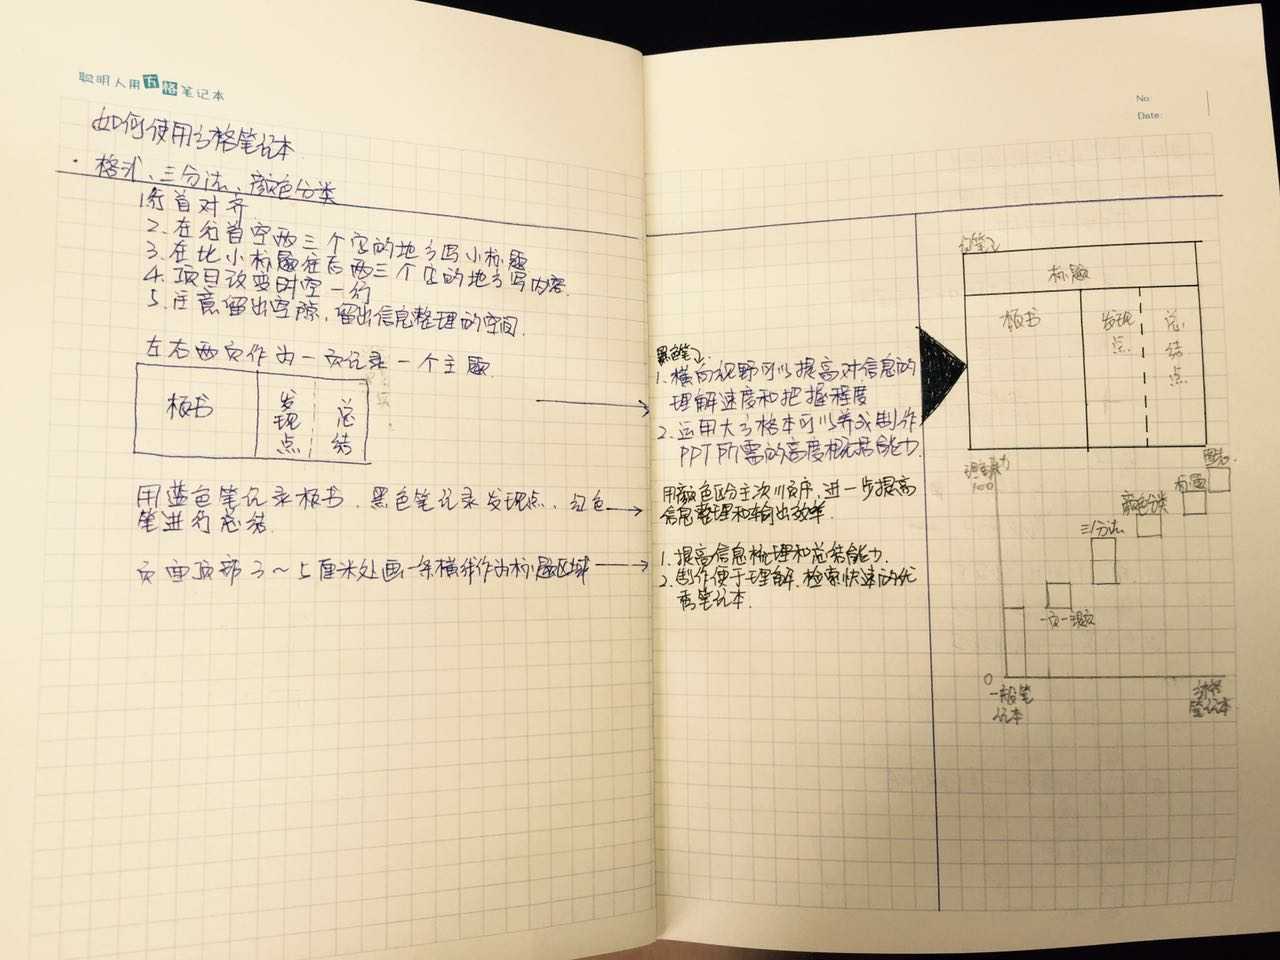 聪明人用方格笔记本
如何使用方格笔记本
· 格式、三分法、颜色分类
1.行首对齐
2.在行首空两三个字的地方写小标题
3.在比小标题往后两三个字的地方写内容.
4.项目改变时空一行
5.注意留出空隙,留出信息整理的空间.
左右两页作为一页记录一个主题.
板书
发现点
总结
用蓝色笔记录板书、黑色笔记录发现点、红色
笔进行总结.
页面顶部3～5厘米处画一条横线作为标题区域
No:
Date:
黑色笔
1.横向视野可以提高对信息的
理解速度和把握程度
2.运用大方格本可以养成制作
PPT所需的高度概括能力.
用颜色区分主次顺序,进一步提高
信息整理和输出效率.
1.提高信息梳理和总结能力.
2.制作便于理解、检索快速的优
秀笔记本.
标题
板书
发现点
总结点
100
图表
标题
颜色分类
三分法
一页一主题
0
一般笔记本
方格笔记本